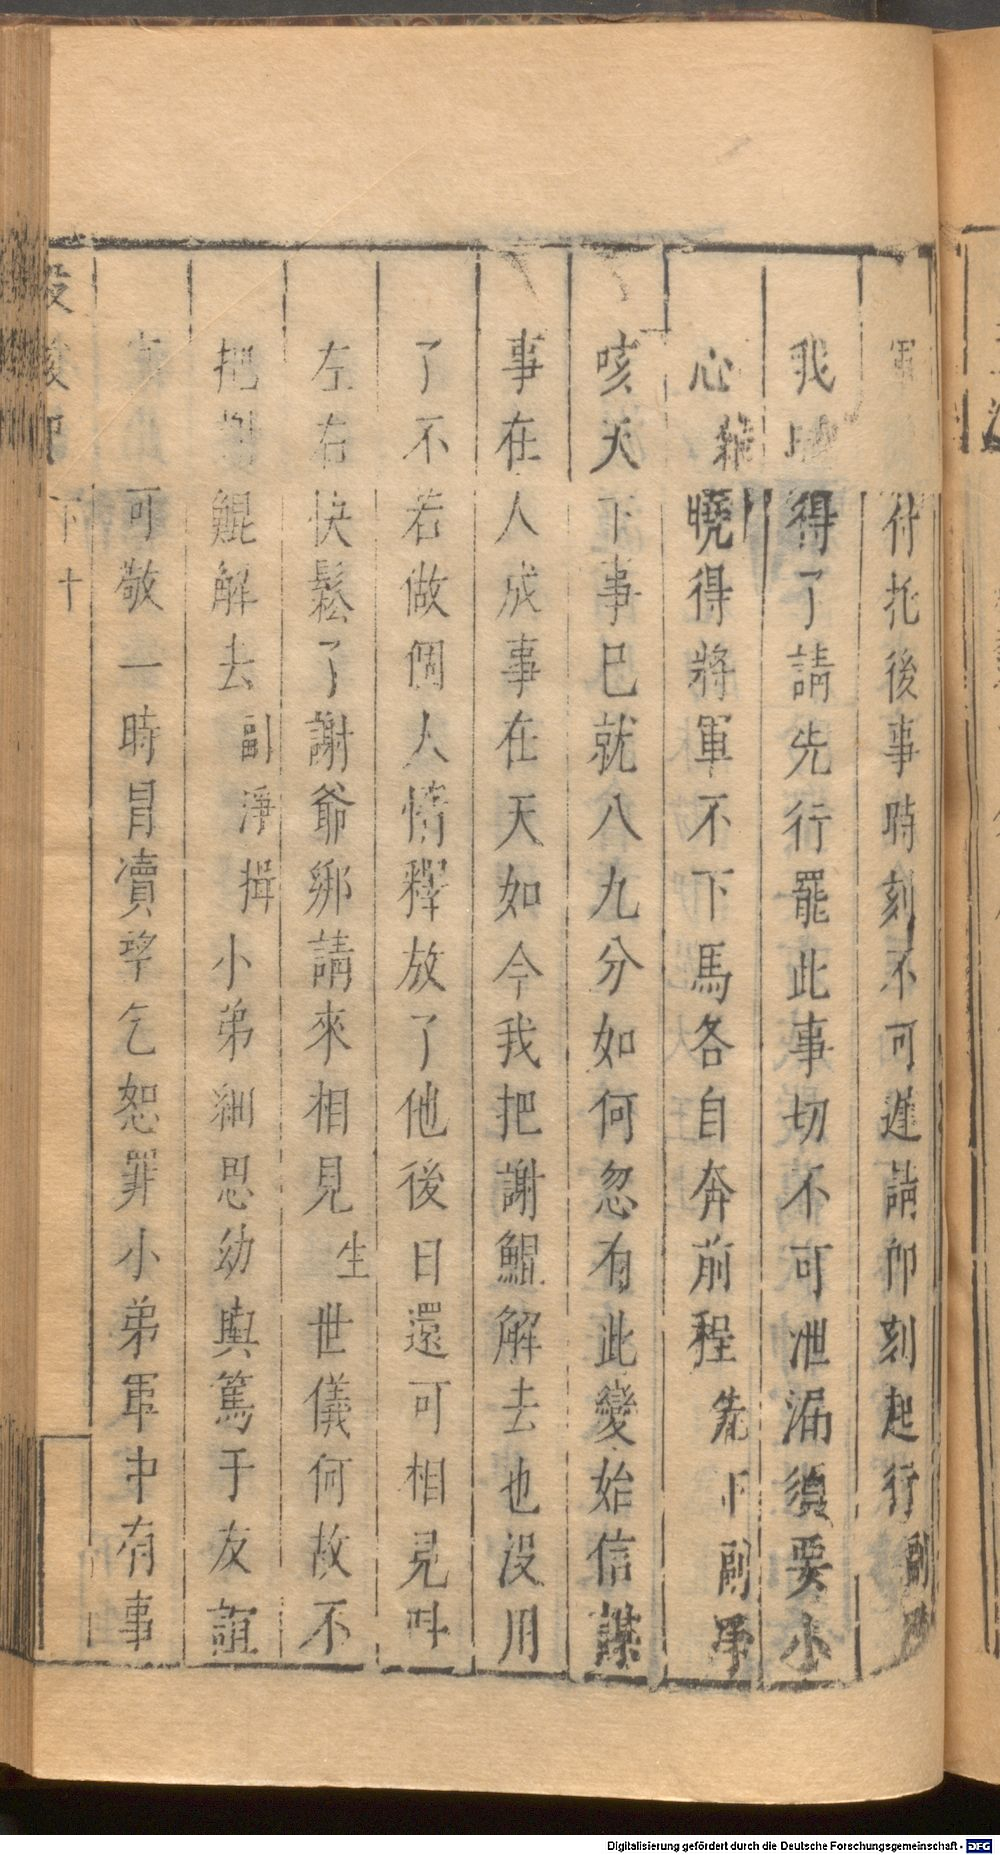 軍付托後事時刻不可遲請卽刻起行副淨
我曉得了請先行罷此事切不可泄漏須要小
心雜曉得將軍不下馬各自奔前程先下副淨
咳天下事已就八九分如何忽有此變始信謀
事在人成事在天如今我把謝鯤解去也没用
了不若做個人情釋放了他後日還可相見叫
左右快鬆了謝爺綁請來相見生世儀何故不
把謝鯤解去副淨揖小弟細思幼輿篤于友誼
可敬一時冒瀆望乞恕罪小弟軍中有事
下十
Digitalisierung gefördert durch die Deutsche Forschungsgemeinschaft - DFG